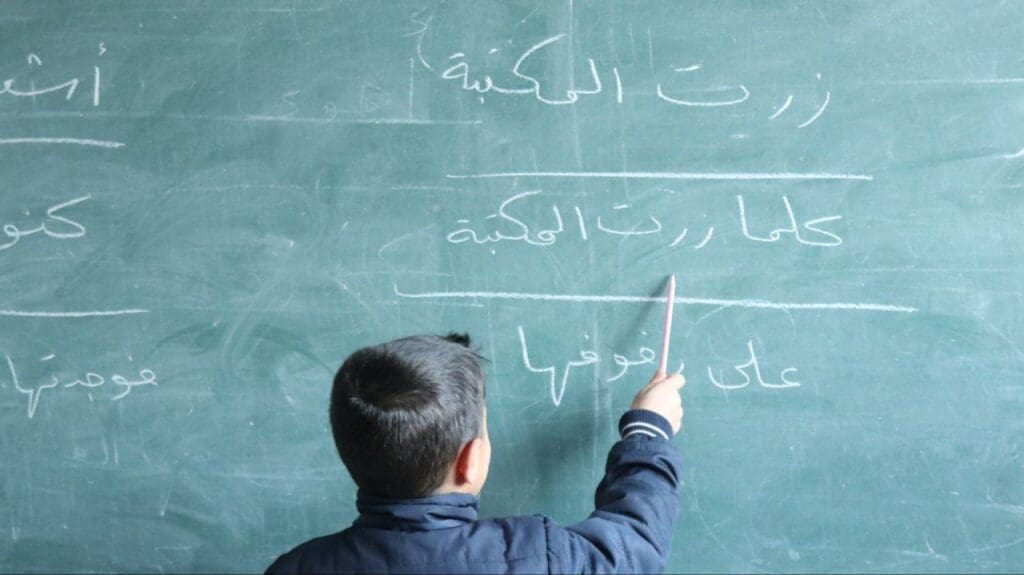 زرت المكتبة
كلما زرت المكتبة
على رفوفها فوجدتها